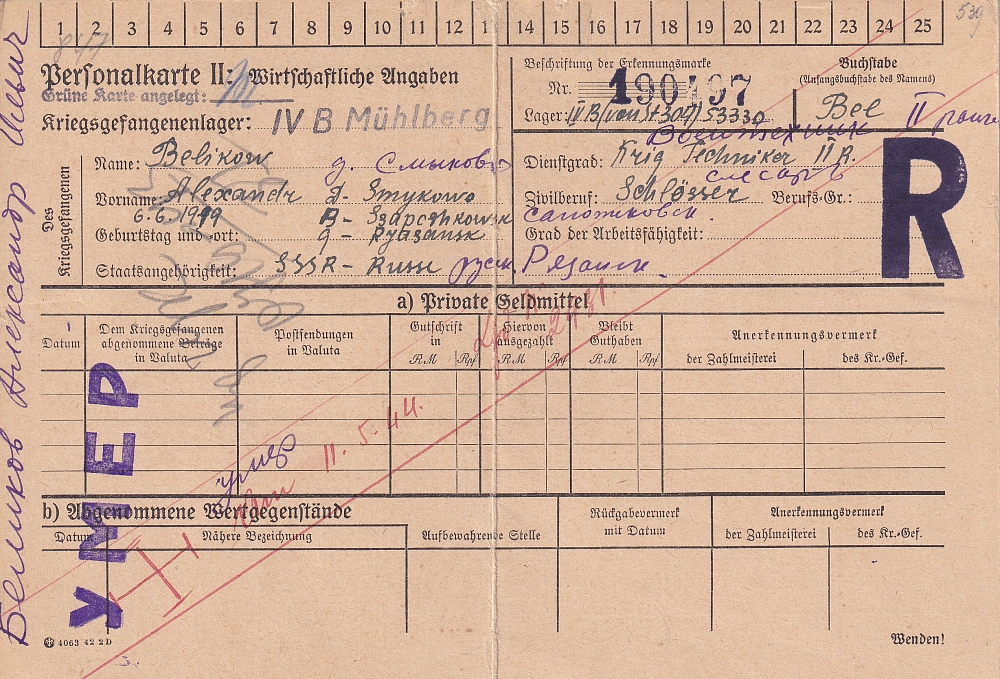 1 2 3 4 5 6 7 8 9 10 11 12 13 14 15 16 17 18 19 20 21 22 23 24 25
539
847
Personalkarte II: Wirtschaftliche Angaben
Beschriftung der Erkennungsmarke
Buchstabe
(Anfangsbuchstabe des Namens)
Grüne Karte angelegt:
Nr. 190497
Kriegsgefangenenlager: IV B Mühlberg
Lager: IV B (von St 304) 53330
Bel
Воентехник II ранга
Des Kriegsgefangenen
Name: Belikow д. Смыково
Dienstgrad: Krig Techniker II R.
слесарь
R
Vorname: Alexandr d- Smykowo
Zivilberuf: Schlösser Berufs-Gr.:
6.6.1919 R- Szapozhkowsk
сапожковск.
Geburtstag und -ort: g- Rjasansk
Grad der Arbeitsfähigkeit:
Staatsangehörigkeit: SSSR- Russe русск. Рязанск.
a) Private Geldmittel
Datum
Dem Kriegsgefangenen abgenommene Beträge in Valuta
Postsendungen in Valuta
Gutschrift in
RM Rpf
Hiervon ausgezahlt
RM Rpf
Bleibt Guthaben
RM Rpf
Anerkennungsvermerk
der Zahlmeisterei des Kr.-Gef.
умер
am 11.5.44.
b) Abgenommene Wertgegenstände
Datum
Nähere Bezeichnung
Aufbewahrende Stelle
Rückgabevermerk mit Datum
Anerkennungsvermerk
der Zahlmeisterei des Kr.-Gef.
УМЕР
Беликов Александр Ильич
4063 42 2D
Wenden!